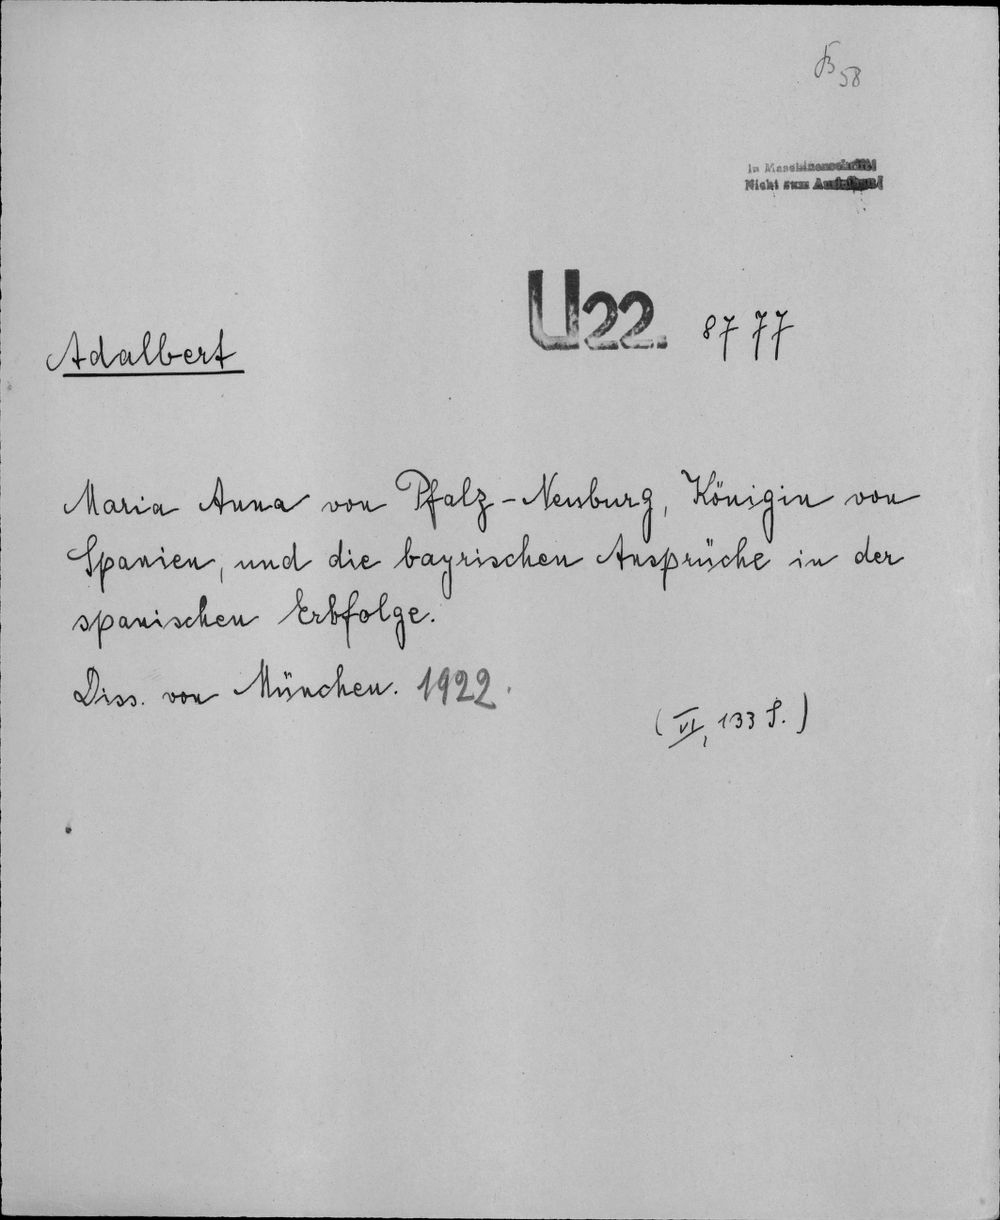 58
In Maschinenschrift!
Nicht zum
U22. 8777
Adalbert
Maria Anna von Pfalz-Neuburg, Königin von
Spanien, und die bayrischen Ansprüche in der
spanischen Erbfolge.
Diss. von München. 1922.
(VI, 133 S.)